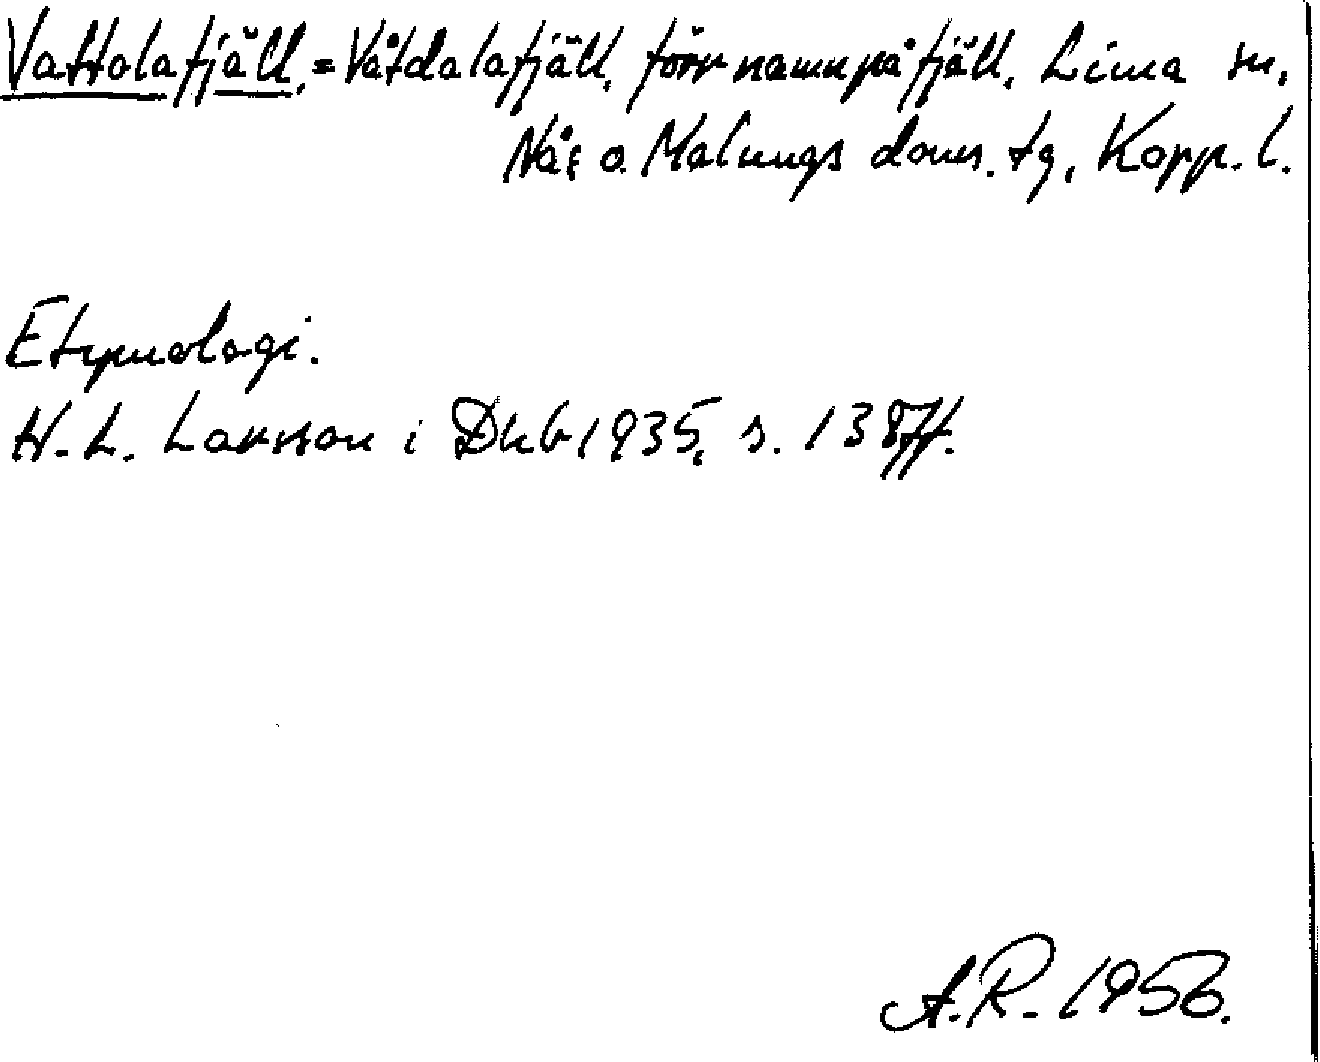 Vattolafjäll, = Våtdalafjäll, förr namn på fjäll, Lima sn,
Nås o. Malungs doms. tg, Kopp. l.
Etymologi.
H. L. Larsson i Dhb 1935, s. 138ff.
A.R. 1956.